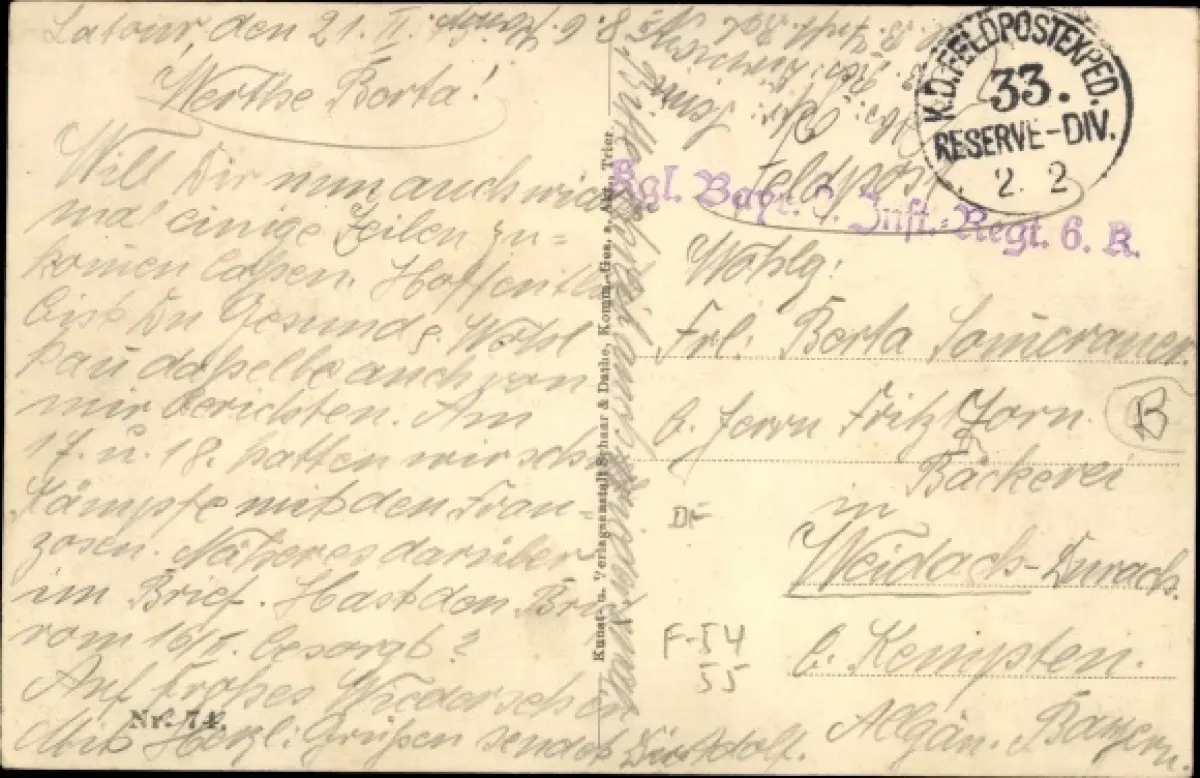 Latour, den 21. II.
Werthe Berta!
Will Dir nun auch wied
mal einige Zeilen zu=
komen laßen. Hoffentl
bist Du Gesund &. Wohl
kan daßelbe auch von
mir berichten. Am
17. u. 18. hatten wir schw
Kämpfe mit den Fran=
zosen. Näheres darüber
im Brief. Hast den Brief
vom 16/I. besorgt?
Auf Frohes Wiedersehen
Mit Herzl: Grüßen sendet Dir Adolf.
Nr. 74.
Kunst- u. Verlagsanstalt Schaar & Dathe, Komm.-Ges. a. Akt., Trier
K.D. FELDPOSTEXPED.
33.
RESERVE-DIV.
2 2
Feldpost
Kgl. Bayr. 8. Inft.-Regt. 6. K.
Wohlg:
Frl. Berta
b. Herrn Fritz Jorn.
B
Bäckerei
in
DF
Weidach-Durach.
F-54
55
b. Kempten.
Allgäu. Bayern.